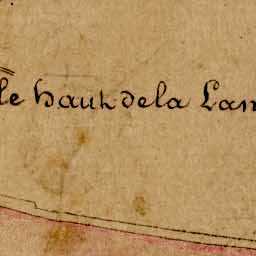 le haut de la Lan